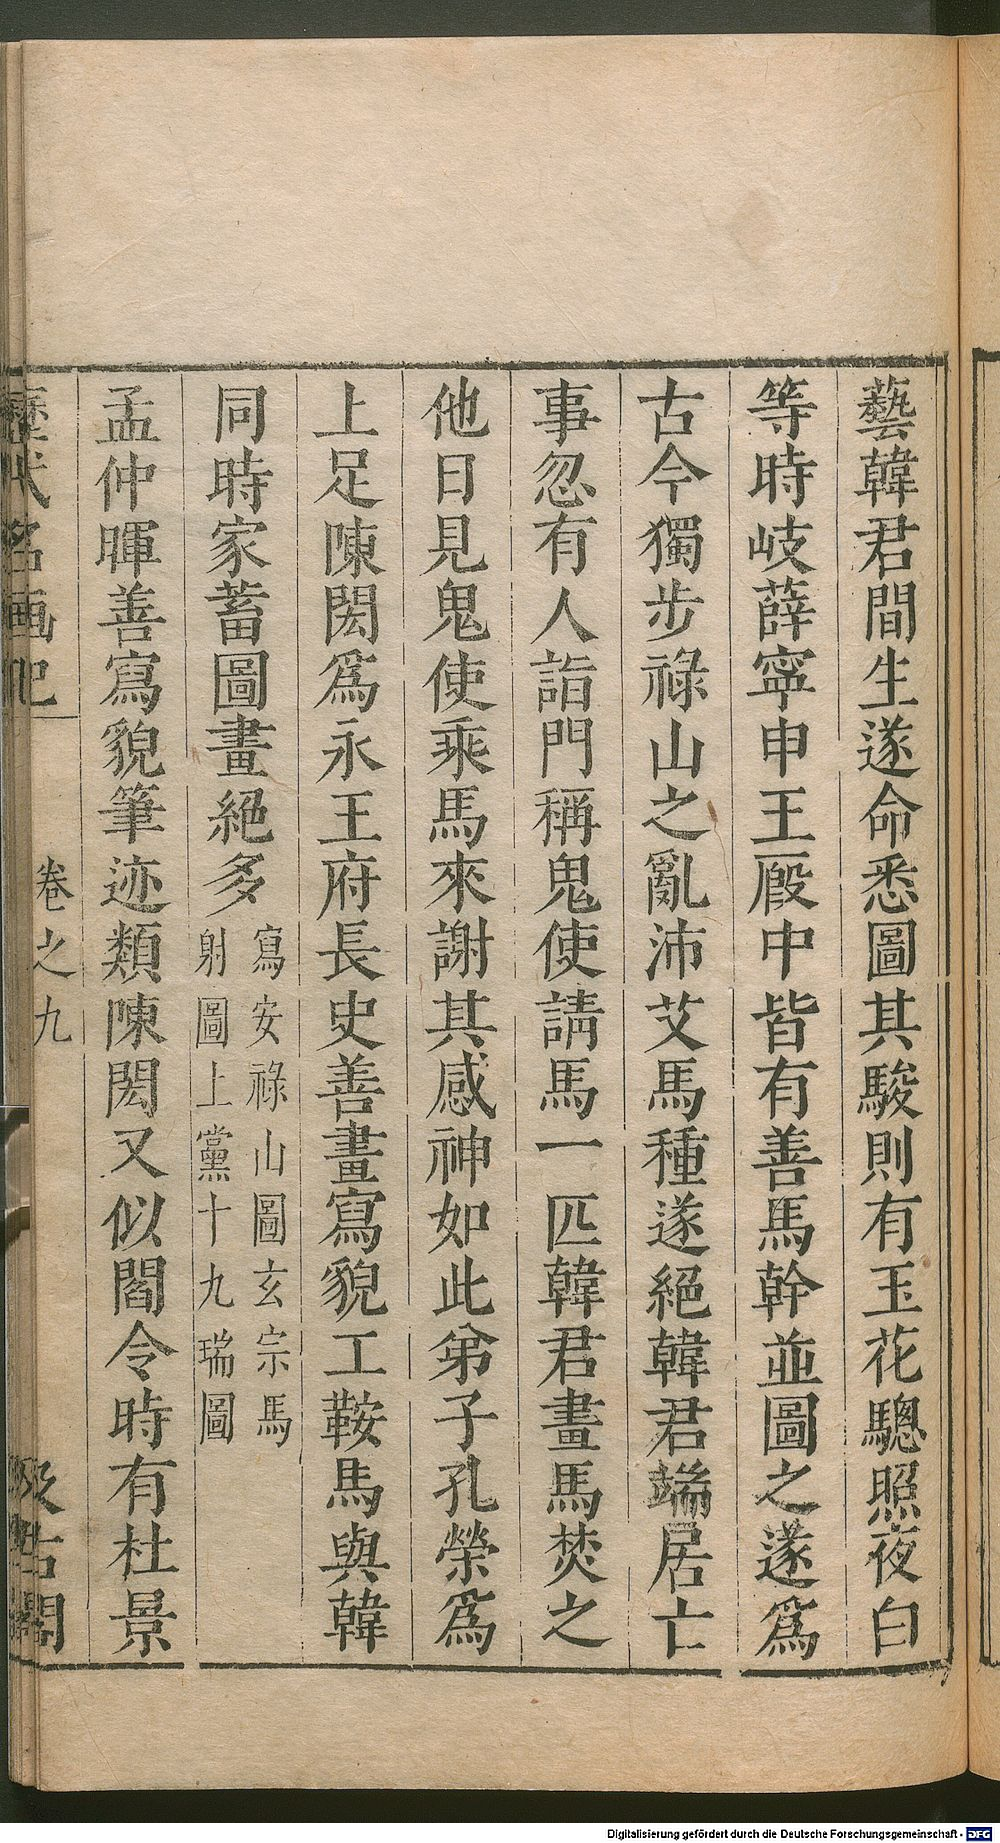 藝韓君間生遂命悉圖其駿則有玉花驄照夜白
等時岐薛寧申王廐中皆有善馬幹並圖之遂爲
古今獨步祿山之亂沛艾馬種遂絕韓君端居亡
事忽有人詣門稱鬼使請馬一匹韓君畫馬焚之
他日見鬼使乘馬來謝其感神如此弟子孔榮爲
上足陳閎爲永王府長史善畫寫貌工鞍馬與韓
同時家蓄圖畫絕多
寫安祿山圖玄宗馬
射圖上黨十九瑞圖
孟仲暉善寫貌筆迹類陳閎又似閻令時有杜景
歷代名画記
卷之九
汲古閣
Digitalisierung gefördert durch die Deutsche Forschungsgemeinschaft - DFG